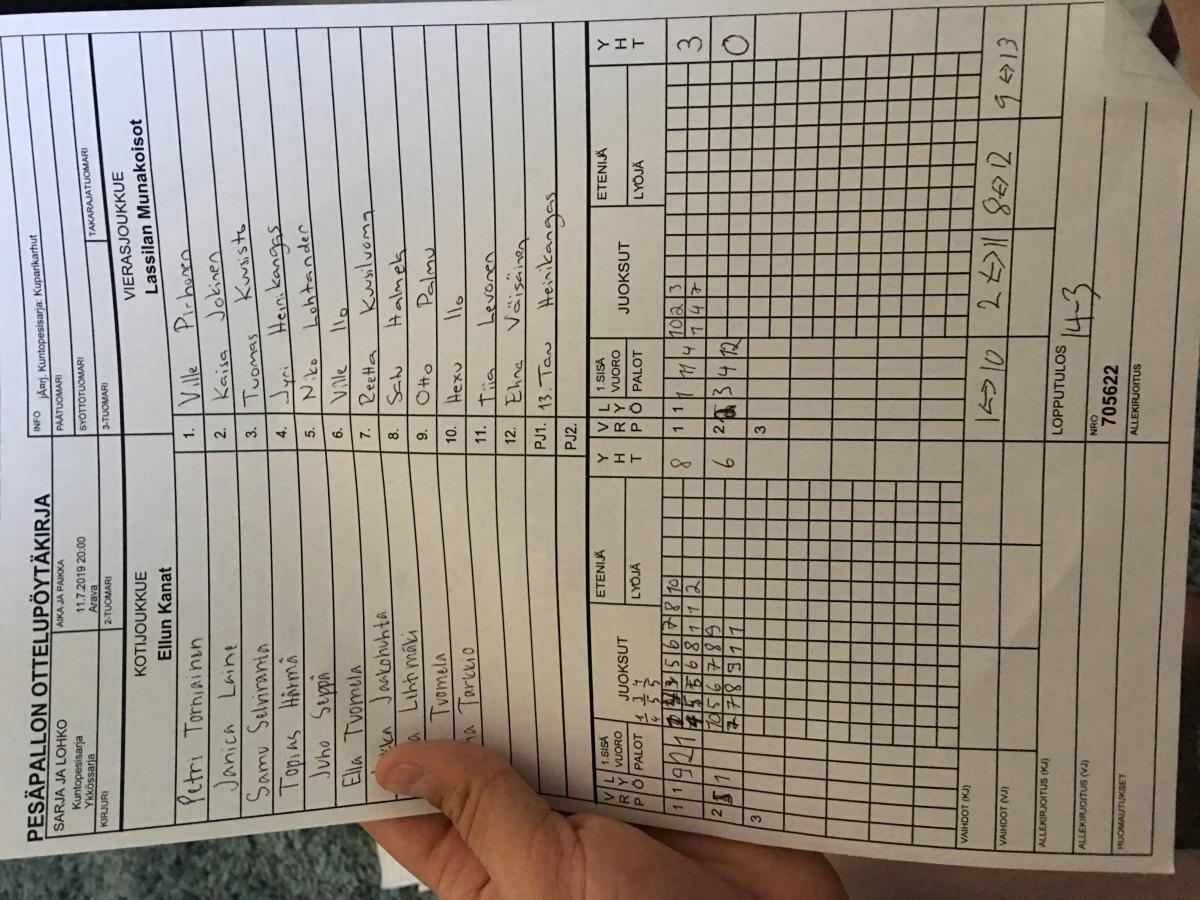 PESÄPALLON OTTELUPÖYTÄKIRJA
SARJA JA LOHKO
Kuntopesisarja
Ykkössarja
AIKA JA PAIKKA
11.7.2019 20:00
Arava
INFO
jÄarj. Kuntopesisarja: Kuparikarhut
PÄÄTUOMARI
SYÖTTÖTUOMARI
KIRJURI
2-TUOMARI
3-TUOMARI
TAKARAJATUOMARI
KOTIJOUKKUE
Ellun Kanat
VIERASJOUKKUE
Lassilan Munakoisot
Petri Torniainen 1. Ville Pirhonen
Janica Laine 2. Kaisa Jokinen
Samu Selviranta 3. Tuomas Kuusisto
Topias Härmä 4. Jyri Heinikangas
Juho Seppä 5. Niko Lohtander
Ella Tuomela 6. Ville Ilo
Jaakohuhta 7. Reetta Kuusiluoma
Lihtmäki 8. Halmek
Tuomela 9. Otto Palmu
Tarkkio 10. Hexu Ilo
11. Tiia Levonen
12. Elina Väisänen
PJ1. 13. Tanu Heinikangas
PJ2.
V R P L Y Ö 1.SISÄ VUORO PALOT JUOKSUT ETENIJÄ LYÖJÄ Y H T
V R P L Y Ö 1.SISÄ VUORO PALOT JUOKSUT ETENIJÄ LYÖJÄ Y H T
1 1 9 2 1 5 6 7 8 10 8
6 8 1 1 2
1 1 11 4 10 2 3 3
1 4 7
2 1 10 5 6 7 8 9 6
7 7 8 9 1 1
2 3 4 12 0
3
3
VAIHDOT (KJ)
VAIHDOT (VJ)
1 ⇔ 10 2 ⇔ 11 8 ⇔ 12 9 ⇔ 13
ALLEKIRJOITUS (KJ)
LOPPUTULOS
14-3
ALLEKIRJOITUS (VJ)
NRO
705622
HUOMAUTUKSET
ALLEKIRJOITUS